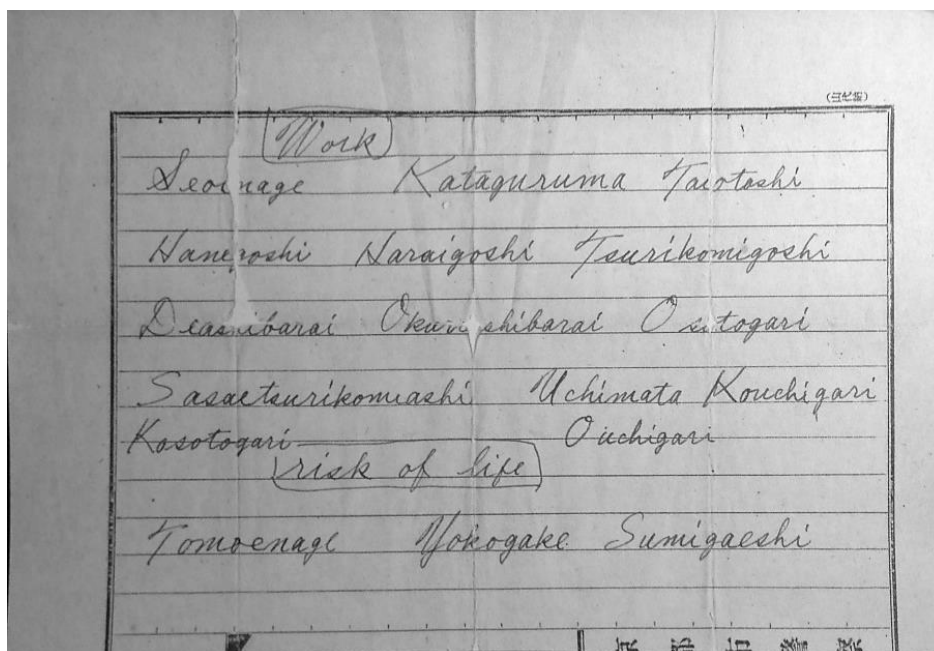 Work
Seoinage Kataguruma Taiotoshi
Hanegoshi Haraigoshi Tsurikomigoshi
Deashibarai Okuriashibarai Osotogari
Sasaetsurikomiashi Uchimata Kouchigari
Kosotogari Ouchigari
risk of life
Tomoenage Yokogake Sumigaeshi
京都市警察